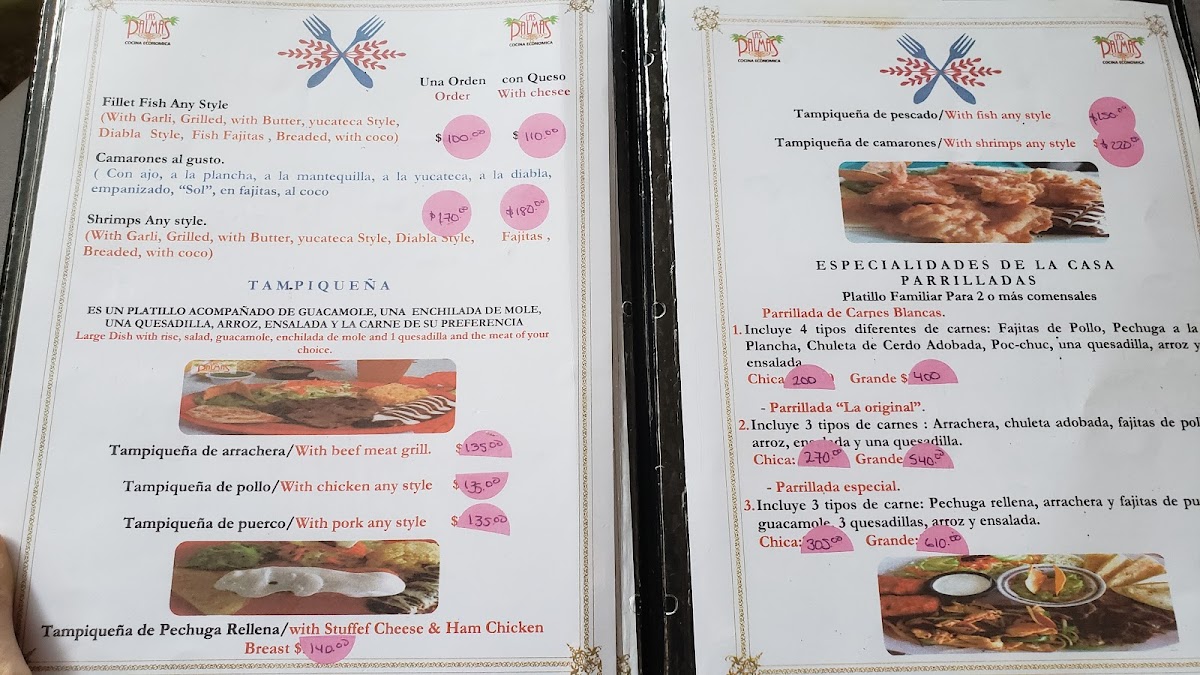 LAS PALMAS
COCINA ECONOMICA
LAS PALMAS
COCINA ECONOMICA
Una Orden
Order
con Queso
With chesee
Fillet Fish Any Style
(With Garli, Grilled, with Butter, yucateca Style,
Diabla Style, Fish Fajitas , Breaded, with coco)
$ 100.00 $ 110.00
Camarones al gusto.
( Con ajo, a la plancha, a la mantequilla, a la yucateca, a la diabla,
empanizado, “Sol”, en fajitas, al coco
$170.00 $180.00
Shrimps Any style.
(With Garli, Grilled, with Butter, yucateca Style, Diabla Style, Fajitas ,
Breaded, with coco)
TAMPIQUEÑA
ES UN PLATILLO ACOMPAÑADO DE GUACAMOLE, UNA ENCHILADA DE MOLE,
UNA QUESADILLA, ARROZ, ENSALADA Y LA CARNE DE SU PREFERENCIA
Large Dish with rise, salad, guacamole, enchilada de mole and 1 quesadilla and the meat of your
choice.
PALMAS
Tampiqueña de arrachera/With beef meat grill. $135.00
Tampiqueña de pollo/With chicken any style $135.00
Tampiqueña de puerco/With pork any style $135.00
Tampiqueña de Pechuga Rellena/with Stuffef Cheese & Ham Chicken
Breast $.140.00
LAS PALMAS
COCINA ECONOMICA
LAS PALMAS
COCINA ECONOMICA
Tampiqueña de pescado/With fish any style
Tampiqueña de camarones/With shrimps any style $220.00
ESPECIALIDADES DE LA CASA
PARRILLADAS
Platillo Familiar Para 2 o más comensales
Parrillada de Carnes Blancas.
1. Incluye 4 tipos diferentes de carnes: Fajitas de Pollo, Pechuga a la
Plancha, Chuleta de Cerdo Adobada, Poc-chuc, una quesadilla, arroz y
ensalada
Chica 200 Grande $ 400
- Parrillada “La original”.
2. Incluye 3 tipos de carnes : Arrachera, chuleta adobada, fajitas de pol
arroz, ensalada y una quesadilla.
Chica: 270.00 Grande 540.00
- Parrillada especial.
3. Incluye 3 tipos de carne: Pechuga rellena, arrachera y fajitas de pu
guacamole, 3 quesadillas, arroz y ensalada.
Chica: 305.00 Grande: 610.00